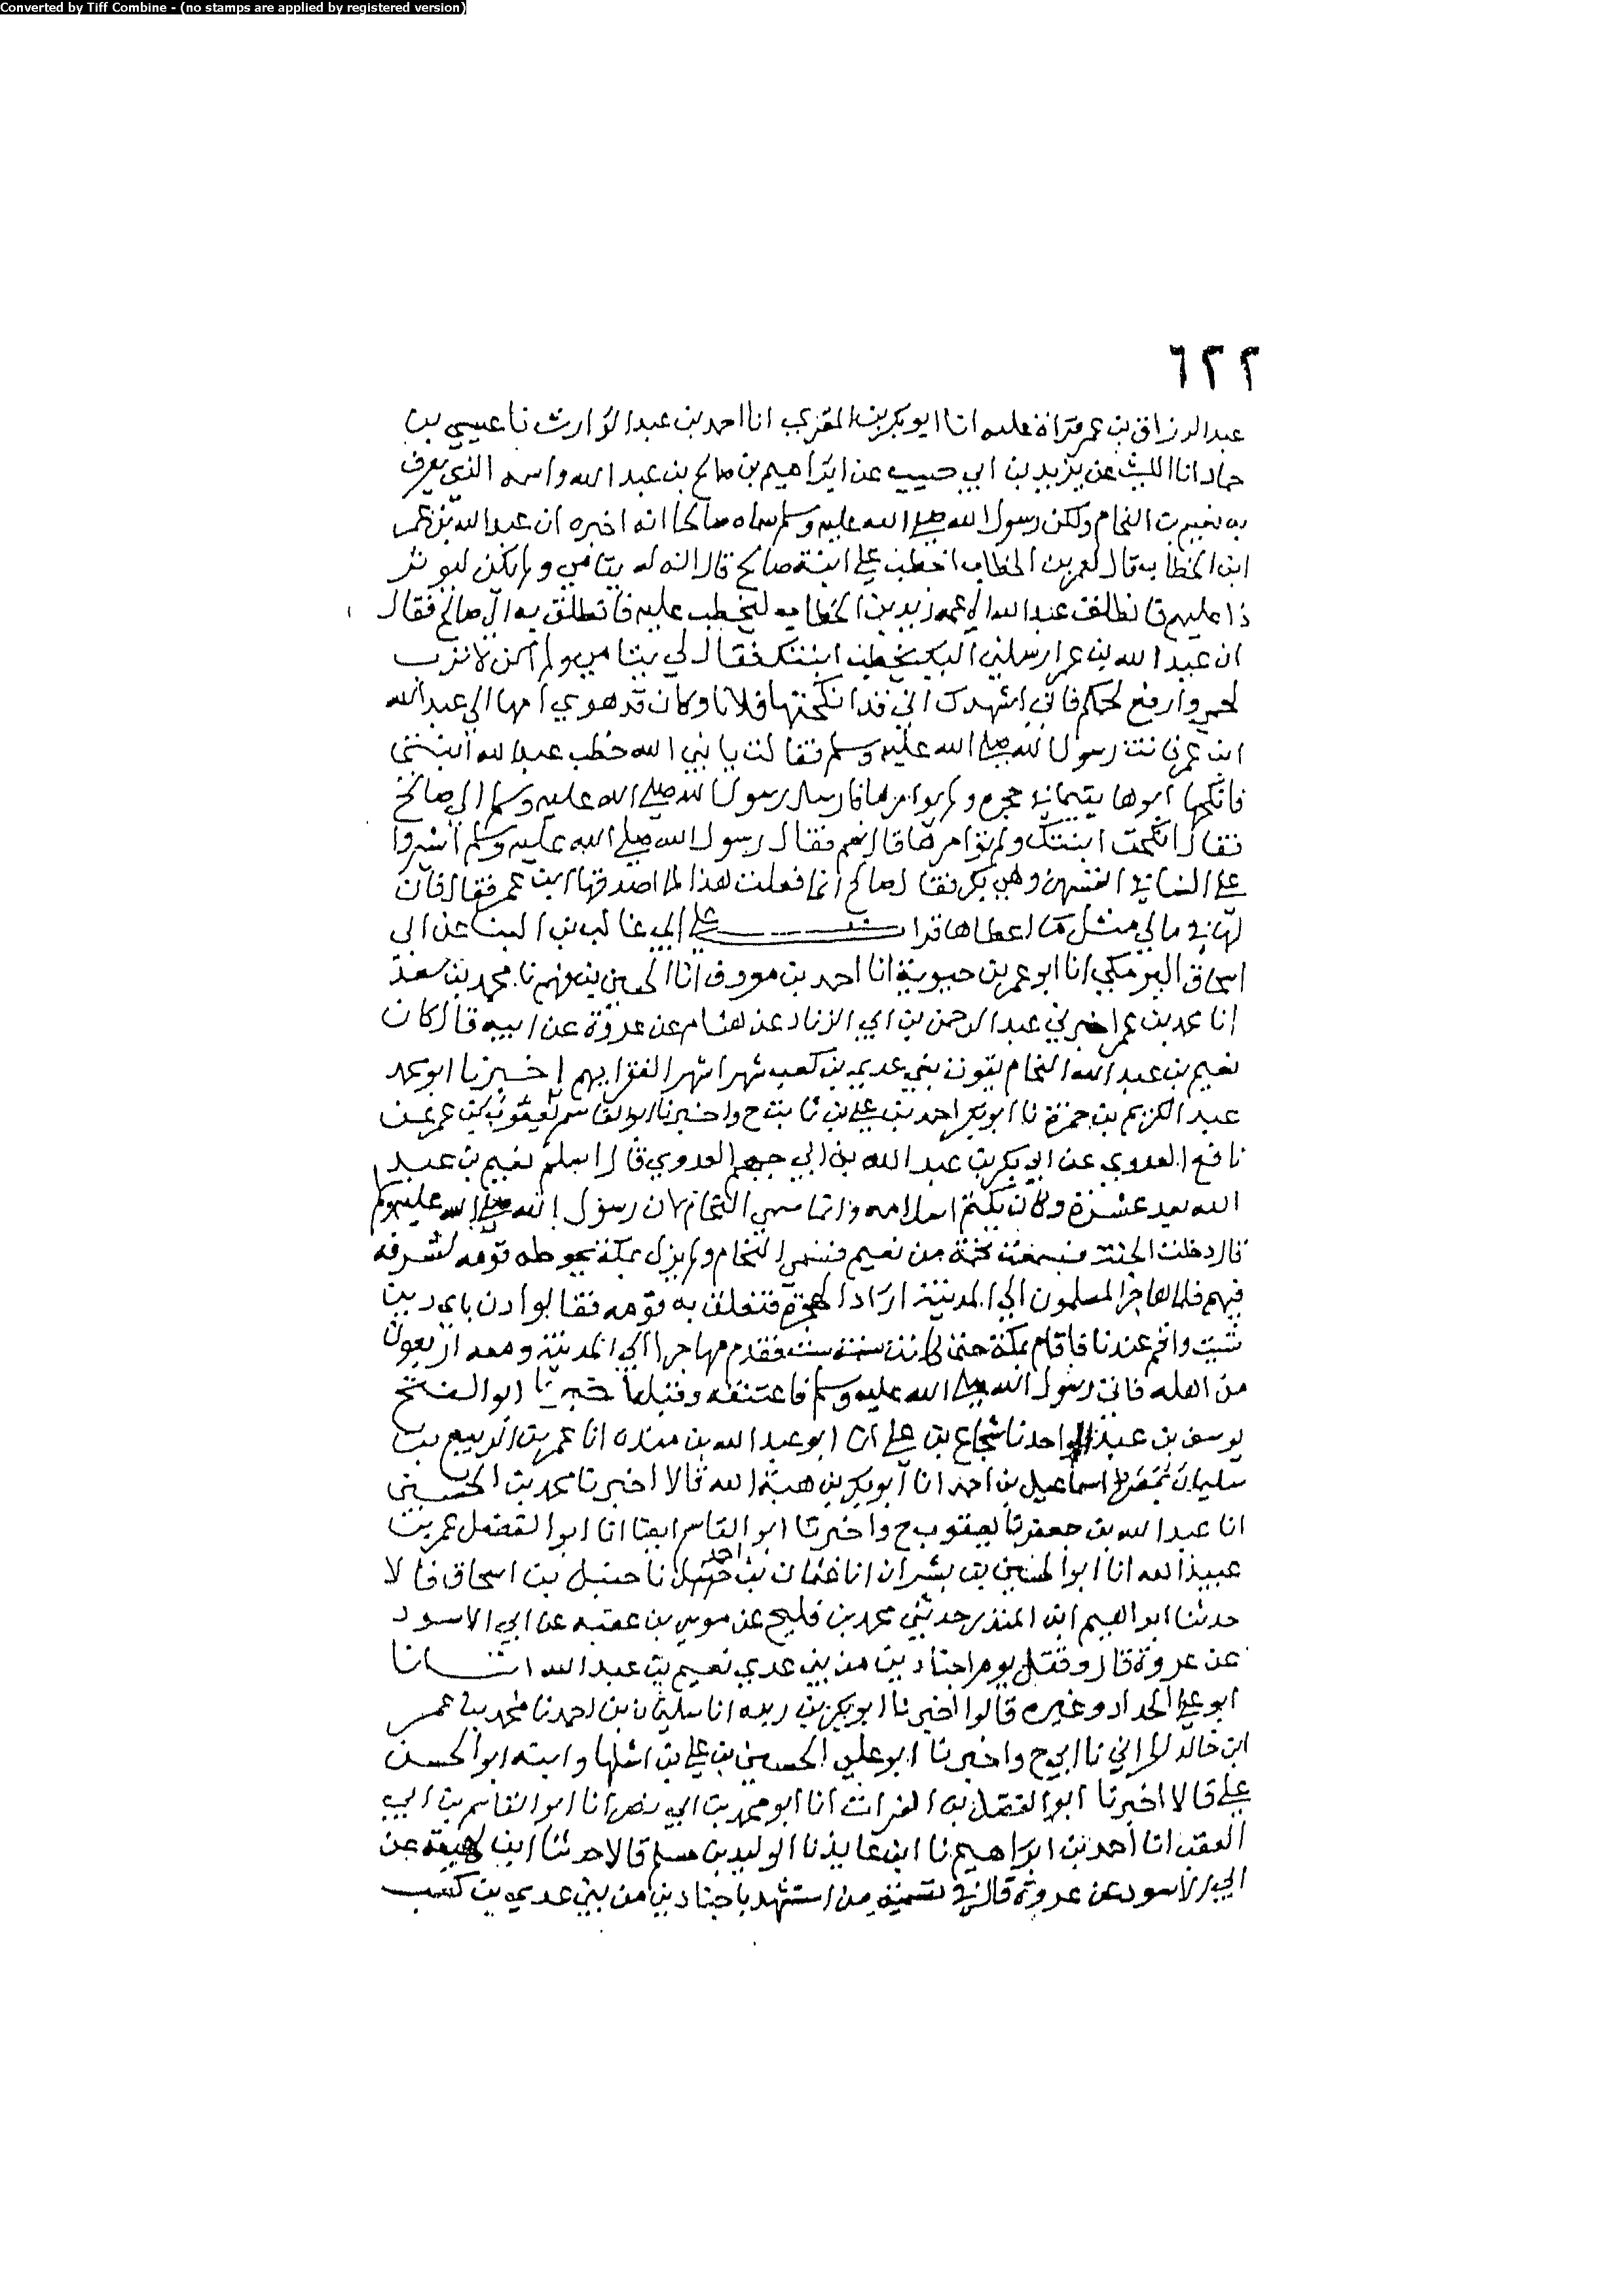 Converted by Tiff Combine - (no stamps are applied by registered version)
٦٢٢
عبد الرزاق بن عمر قراة عليه انا ابو بكر بن المقري انا احمد بن عبد الوارث نا عيسي بن
حماد انا الليث عن يزيد بن ابي حبيب عن ابراهيم بن صالح بن عبد الله واسمه الذي يعرف
به نعيم بن النحام ولكن رسول الله صلي الله عليه وسلم سماه صالحا انه اخبره ان عبد الله بن عمر
ابن الخطاب قال لعمر بن الخطاب اخطب علي ابنة صالح قال انه له يتامي ولم يكن ليوثر
نا عليهم فانطلق عبد الله الي عمه زيد بن الخطاب ليخطب عليه فانطلق به الي صالح فقال
ان عبد الله بن عمر ارسلني اليك يخطب ابنتك فقال لي يتامي ولم اكن لاترب
لحمي وارفع لحمكم فاني اشهدك اني قد انكحتها فلانا وكان قد هوي امها الي عبد الله
ابن عمر فاتت رسول الله صلي الله عليه وسلم فقالت يا نبي الله خطب عبد الله ابنتي
فانكحها ابوها يتيما في حجره ولم يوامرها فارسل رسول الله صلي الله عليه وسلم الي صالح
فقال انكحت ابنتك ولم توامرها قال نعم فقال رسول الله صلي الله عليه وسلم اشيروا
علي النسا في انفسهن وهي بكر فقال صالح انما فعلت هذا لما اصدقها ابن عمر فقال فان
لها في مالي مثل ما اعطاها قرات علي ابي غالب بن البنا عن ابي
اسحاق البرمكي انا ابو عمر بن حيوية انا احمد بن معروف انا الحسين بن فهم نا محمد بن سعد
انا محمد بن عمر اخبرني عبد الرحمن بن ابي الزناد عن هشام عن عروة عن ابيه قال كان
نعيم بن عبد الله النحام يقوت بني عدي بن كعب شهرا شهرا لفقرايهم اخبرنا ابو محمد
عبد الكريم بن حمزة نا ابو بكر احمد بن علي بن ثابت ح واخبرنا ابو القاسم يعقوب بن عمر عن
نافع العدوي عن ابي بكر بن عبد الله بن ابي جهم العدوي قال اسلم نعيم بن عبد
الله بعد عشرة وكان يكتم اسلامه وانما سمي النحام لان رسول الله صلي الله عليه وسلم
قال دخلت الجنة فسمعت نحمة من نعيم فسمي النحام ولم يزل بمكة يحوطه قومه لشرفه
فيهم فلما هاجر المسلمون الي المدينة اراد الهجرة فتعلق به قومه فقالوا دن باي دين
شيت واقم عندنا فاقام بمكة حتي كانت سنة ست فقدم مهاجرا الي المدينة ومعه اربعون
من اهله فاتي رسول الله صلي الله عليه وسلم فاعتنقه وقبله اخبرنا ابو الفتح
يوسف بن عبد الواحد نا شجاع بن علي انا ابو عبد الله بن منده انا عمر بن الربيع بن
سليمان اسماعيل بن احمد انا ابو بكر بن هبة الله قالا اخبرنا محمد بن الحسين
انا عبد الله بن جعفر نا يعقوب ح واخبرنا ابو القاسم ايضا انا ابو الفضل عمر بن
عبيد الله انا ابو الحسين بن بشران انا عثمان بن احمد نا حنبل بن اسحاق قالا
حدثنا ابراهيم ابن المنذر حدثني محمد بن فليح عن موسي بن عقبه عن ابي الاسود
عن عروة قال وقتل يوم اجنادين من بني عدي نعيم بن عبد الله انبانا
ابو علي الحداد وغيره قالوا اخبرنا ابو بكر بن ريده انا سليمان بن احمد نا محمد بن عمر
ابن خالد الحراني نا ابي ح واخبرنا ابو علي الحسين بن علي بن اشليها وابنه ابو الحسن
علي قالا اخبرنا ابو الفضل بن الفرات انا ابو محمد بن ابي نصر انا ابو القاسم بن ابي
العقب انا احمد بن ابراهيم نا ابن عايذ نا الوليد بن مسلم قالا حدثنا ابن لهيعة عن
ابي الاسود عن عروة قال في تسمية من استشهد باجنادين من بني عدي بن كعب